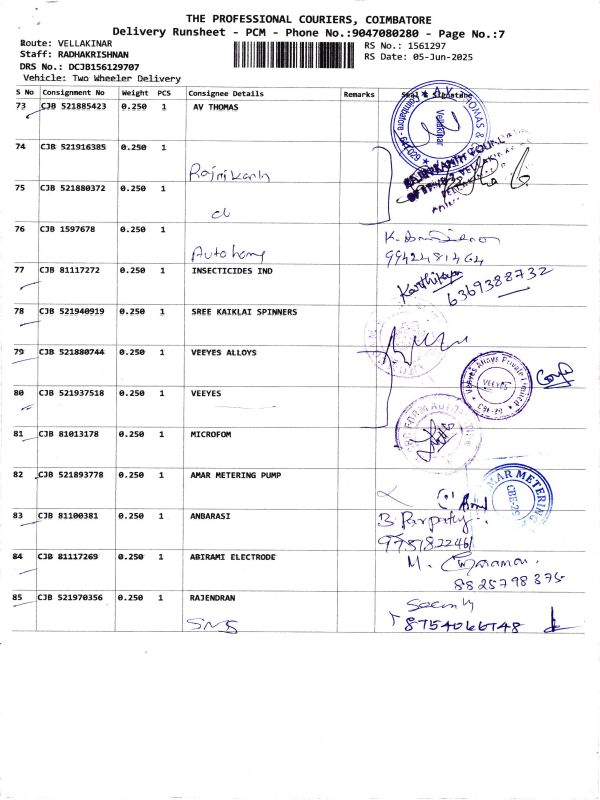 THE PROFESSIONAL COURIERS, COIMBATORE
Delivery Runsheet - PCM - Phone No.:9047080280 - Page No.:7
Route: VELLAKINAR
RS No.: 1561297
Staff: RADHAKRISHNAN
RS Date: 05-Jun-2025
DRS No.: DCJB156129707
Vehicle: Two Wheeler Delivery
S No Consignment No Weight PCS Consignee Details Remarks Seal & Signature
73 CJB 521885423 0.250 1 AV THOMAS
Vellakinar
74 CJB 521916385 0.250 1
Rajnikanth
75 CJB 521880372 0.250 1
76 CJB 1597678 0.250 1
Autohome
9942481464
77 CJB 81117272 0.250 1 INSECTICIDES IND
Karthikeyan
6369388732
78 CJB 521940919 0.250 1 SREE KAIKLAI SPINNERS
79 CJB 521880744 0.250 1 VEEYES ALLOYS
Veeyes Alloys Private Limited
VEEYES
80 CJB 521937518 0.250 1 VEEYES
81 CJB 81013178 0.250 1 MICROFOM
82 CJB 521893778 0.250 1 AMAR METERING PUMP
83 CJB 81100381 0.250 1 ANBARASI
84 CJB 81117269 0.250 1 ABIRAMI ELECTRODE
85 CJB 521970356 0.250 1 RAJENDRAN
SNS
8754066748